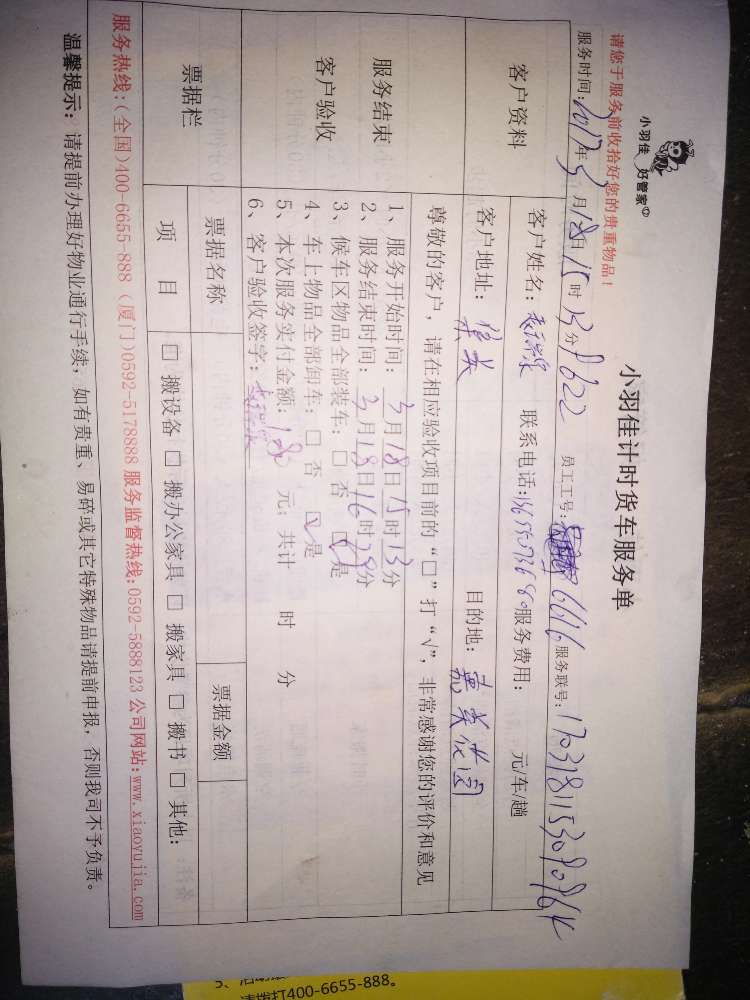 小羽佳 好管家
小羽佳计时货车服务单
请您于服务前收拾好您的贵重物品！
服务时间：2017年3月18日15时 分 员工工号： 6616 服务联号：
客户资料
客户姓名： 联系电话： 服务费用： 元/车/趟
客户地址：集美 目的地：
服务结束
客户验收
尊敬的客户，请在相应验收项目前的“□”打“√”，非常感谢您的评价和意见
1、服务开始时间：3月18日15时13分
2、服务结束时间：3月18日16时29分
3、候车区物品全部装车：□ 否 ☑ 是
4、车上物品全部卸车：□ 否 ☑ 是
5、本次服务实付金额： 元；共计 时 分
6、客户验收签字：
票据栏
票据名称 票据金额
项 目 □ 搬设备 □ 搬办公家具 □ 搬家具 □ 搬书 □ 其他：
服务热线：(全国)400-6655-888 (厦门)0592-5178888 服务监督热线:0592-5888123 公司网站:www.xiaoyujia.com
温馨提示：请提前办理好物业通行手续，如有贵重、易碎或其它特殊物品请提前申报，否则我司不予负责。
请拨打400-6655-888。